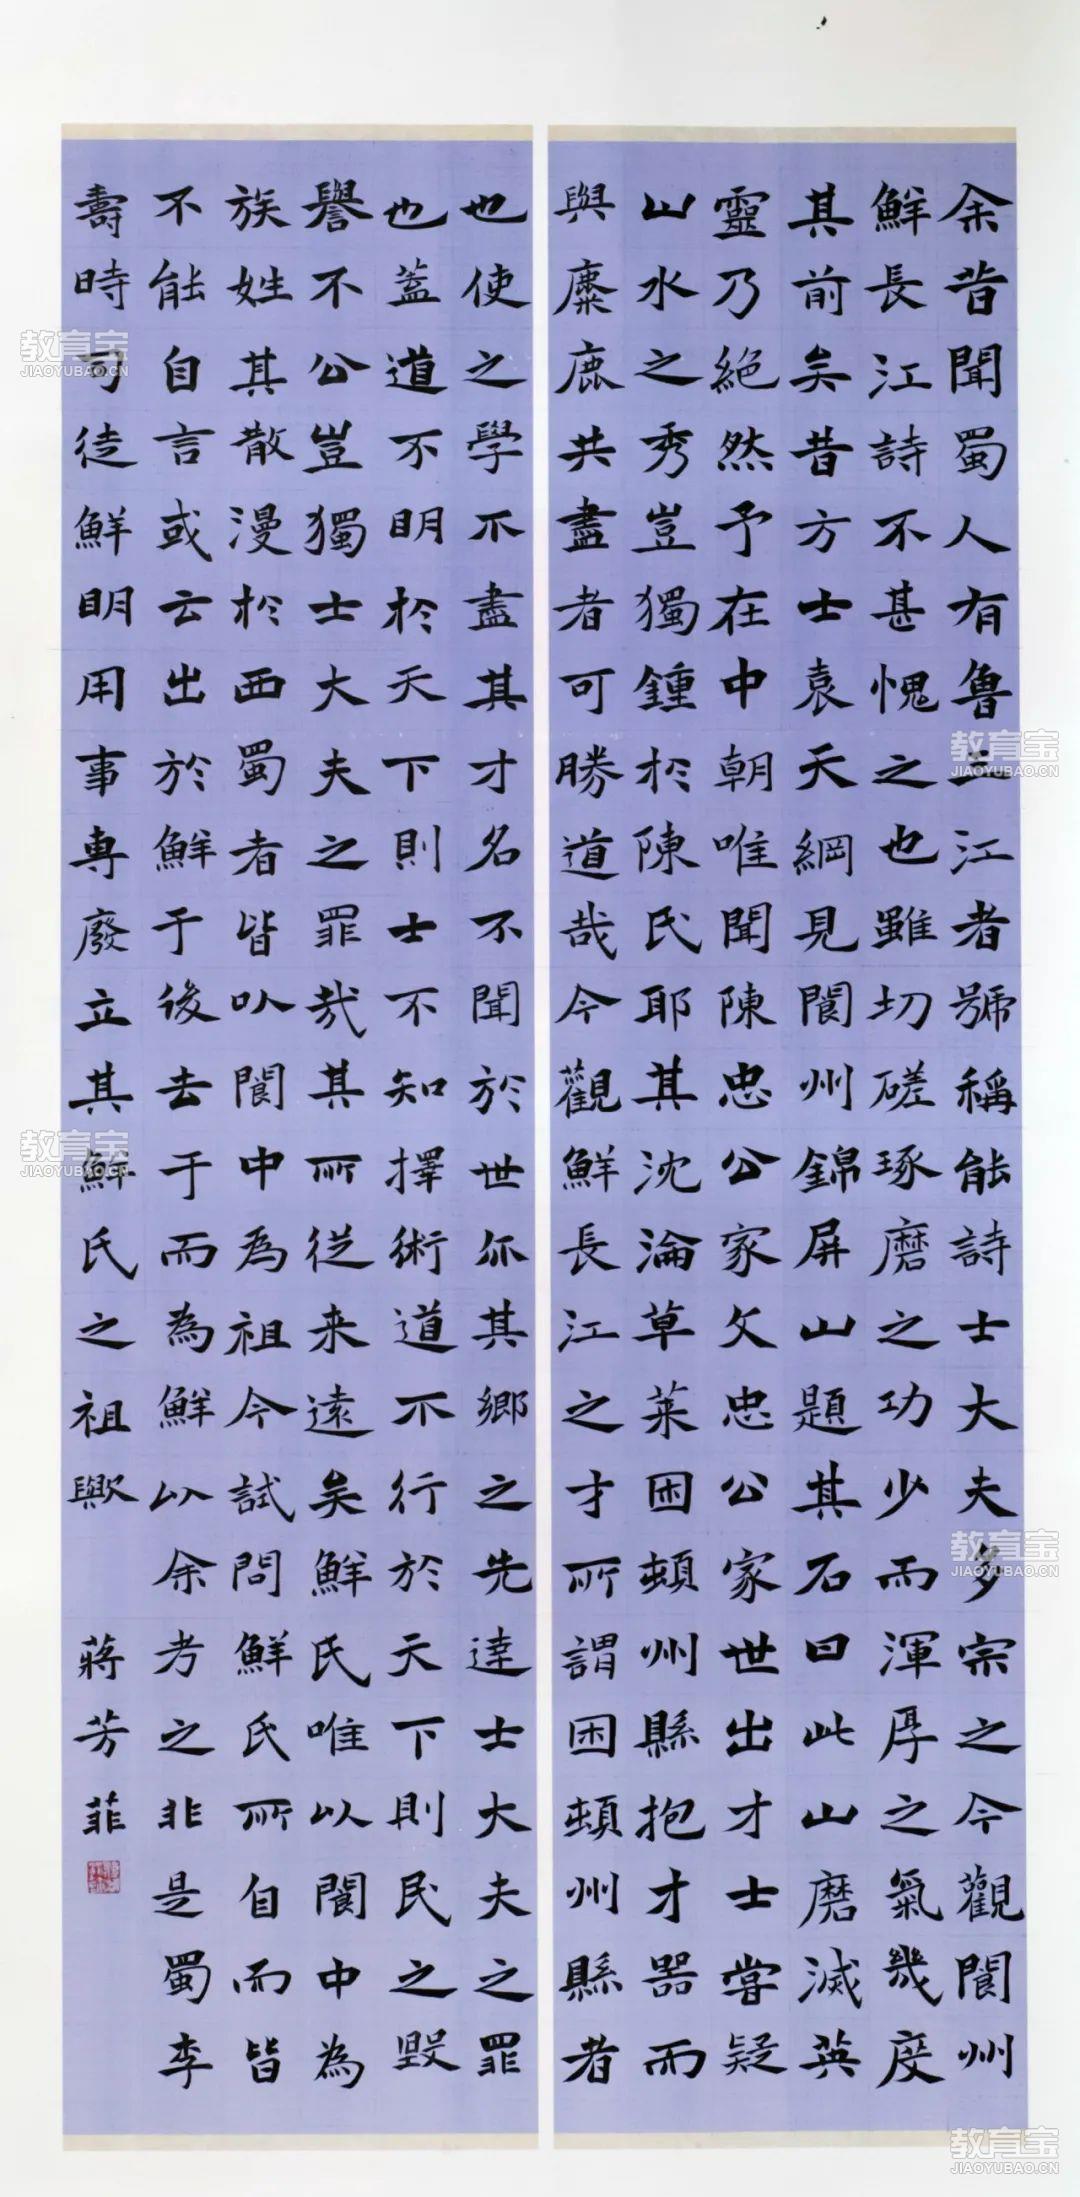 余昔聞蜀人有魯三江者號稱能詩士大夫多宗之今觀閬州
鮮長江詩不甚愧之也雖切磋琢磨之功少而渾厚之氣幾度
其前矣昔方士袁天綱見閬州錦屏山題其石曰此山磨滅英
靈乃絕然予在中朝唯聞陳忠公家文忠公家世出才士嘗疑
山水之秀豈獨鍾於陳氏耶其沈淪草萊困頓州縣抱才器而
與麋鹿共盡者可勝道哉今觀鮮長江之才所謂困頓州縣者
也使之學不盡其才名不聞於世亦其鄉之先達士大夫之罪
也蓋道不明於天下則士不知擇術道不行於天下則民之毀
譽不公豈獨士大夫之罪哉其所從来遠矣鮮氏唯以閬中為
族姓其散漫於西蜀者皆以閬中為祖今試問鮮氏所自而皆
不能自言或云出於鮮于後去于而為鮮以余考之非是蜀李
壽時司徒鮮明用事專廢立其鮮氏之祖歟 蔣芳菲
教育宝
JIAOYUBAO.CN
教育宝
JIAOYUBAO.CN
教育宝
JIAOYUBAO.CN
教育宝
JIAOYUBAO.CN
教育宝
JIAOYUBAO.CN